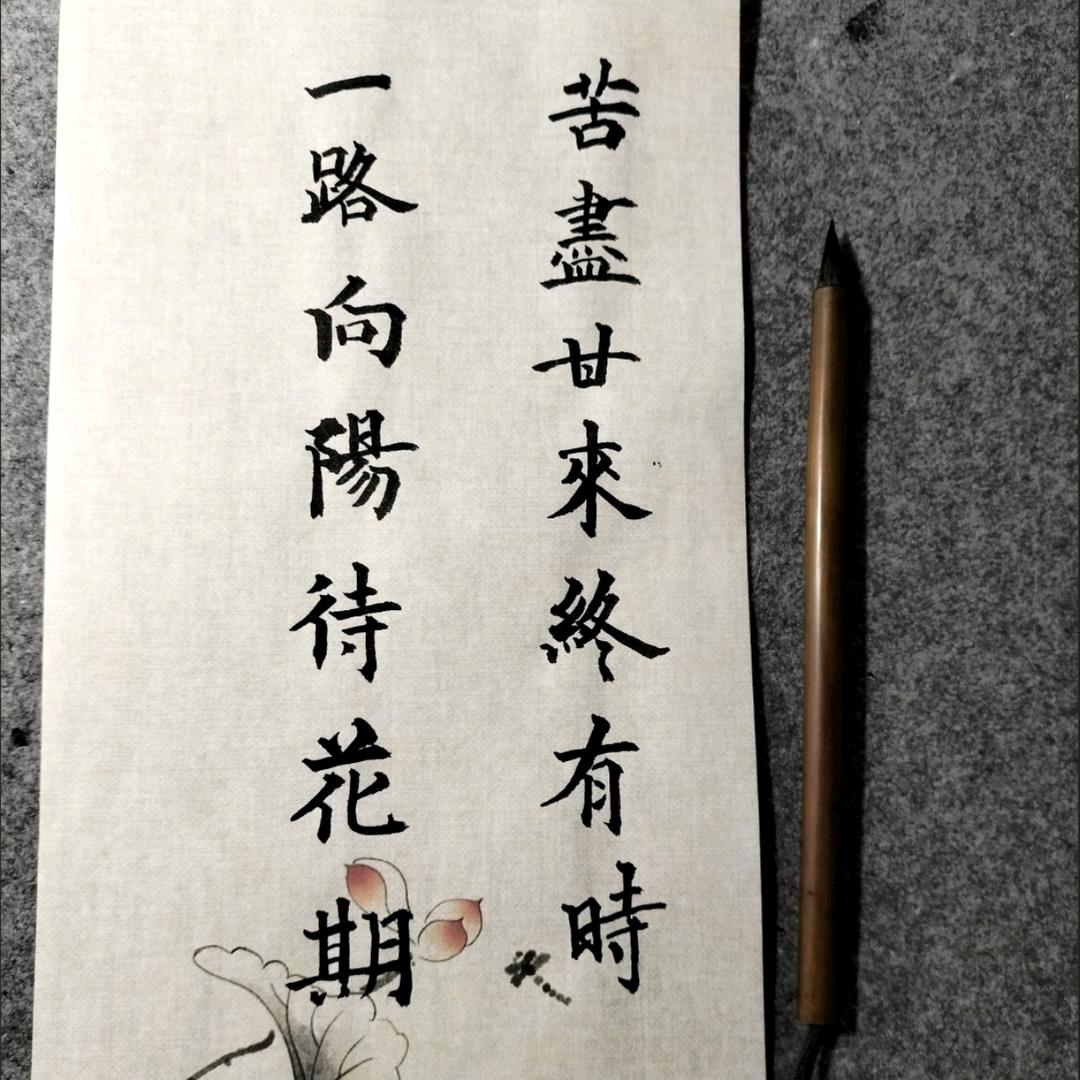 苦盡甘來終有時
一路向陽待花期